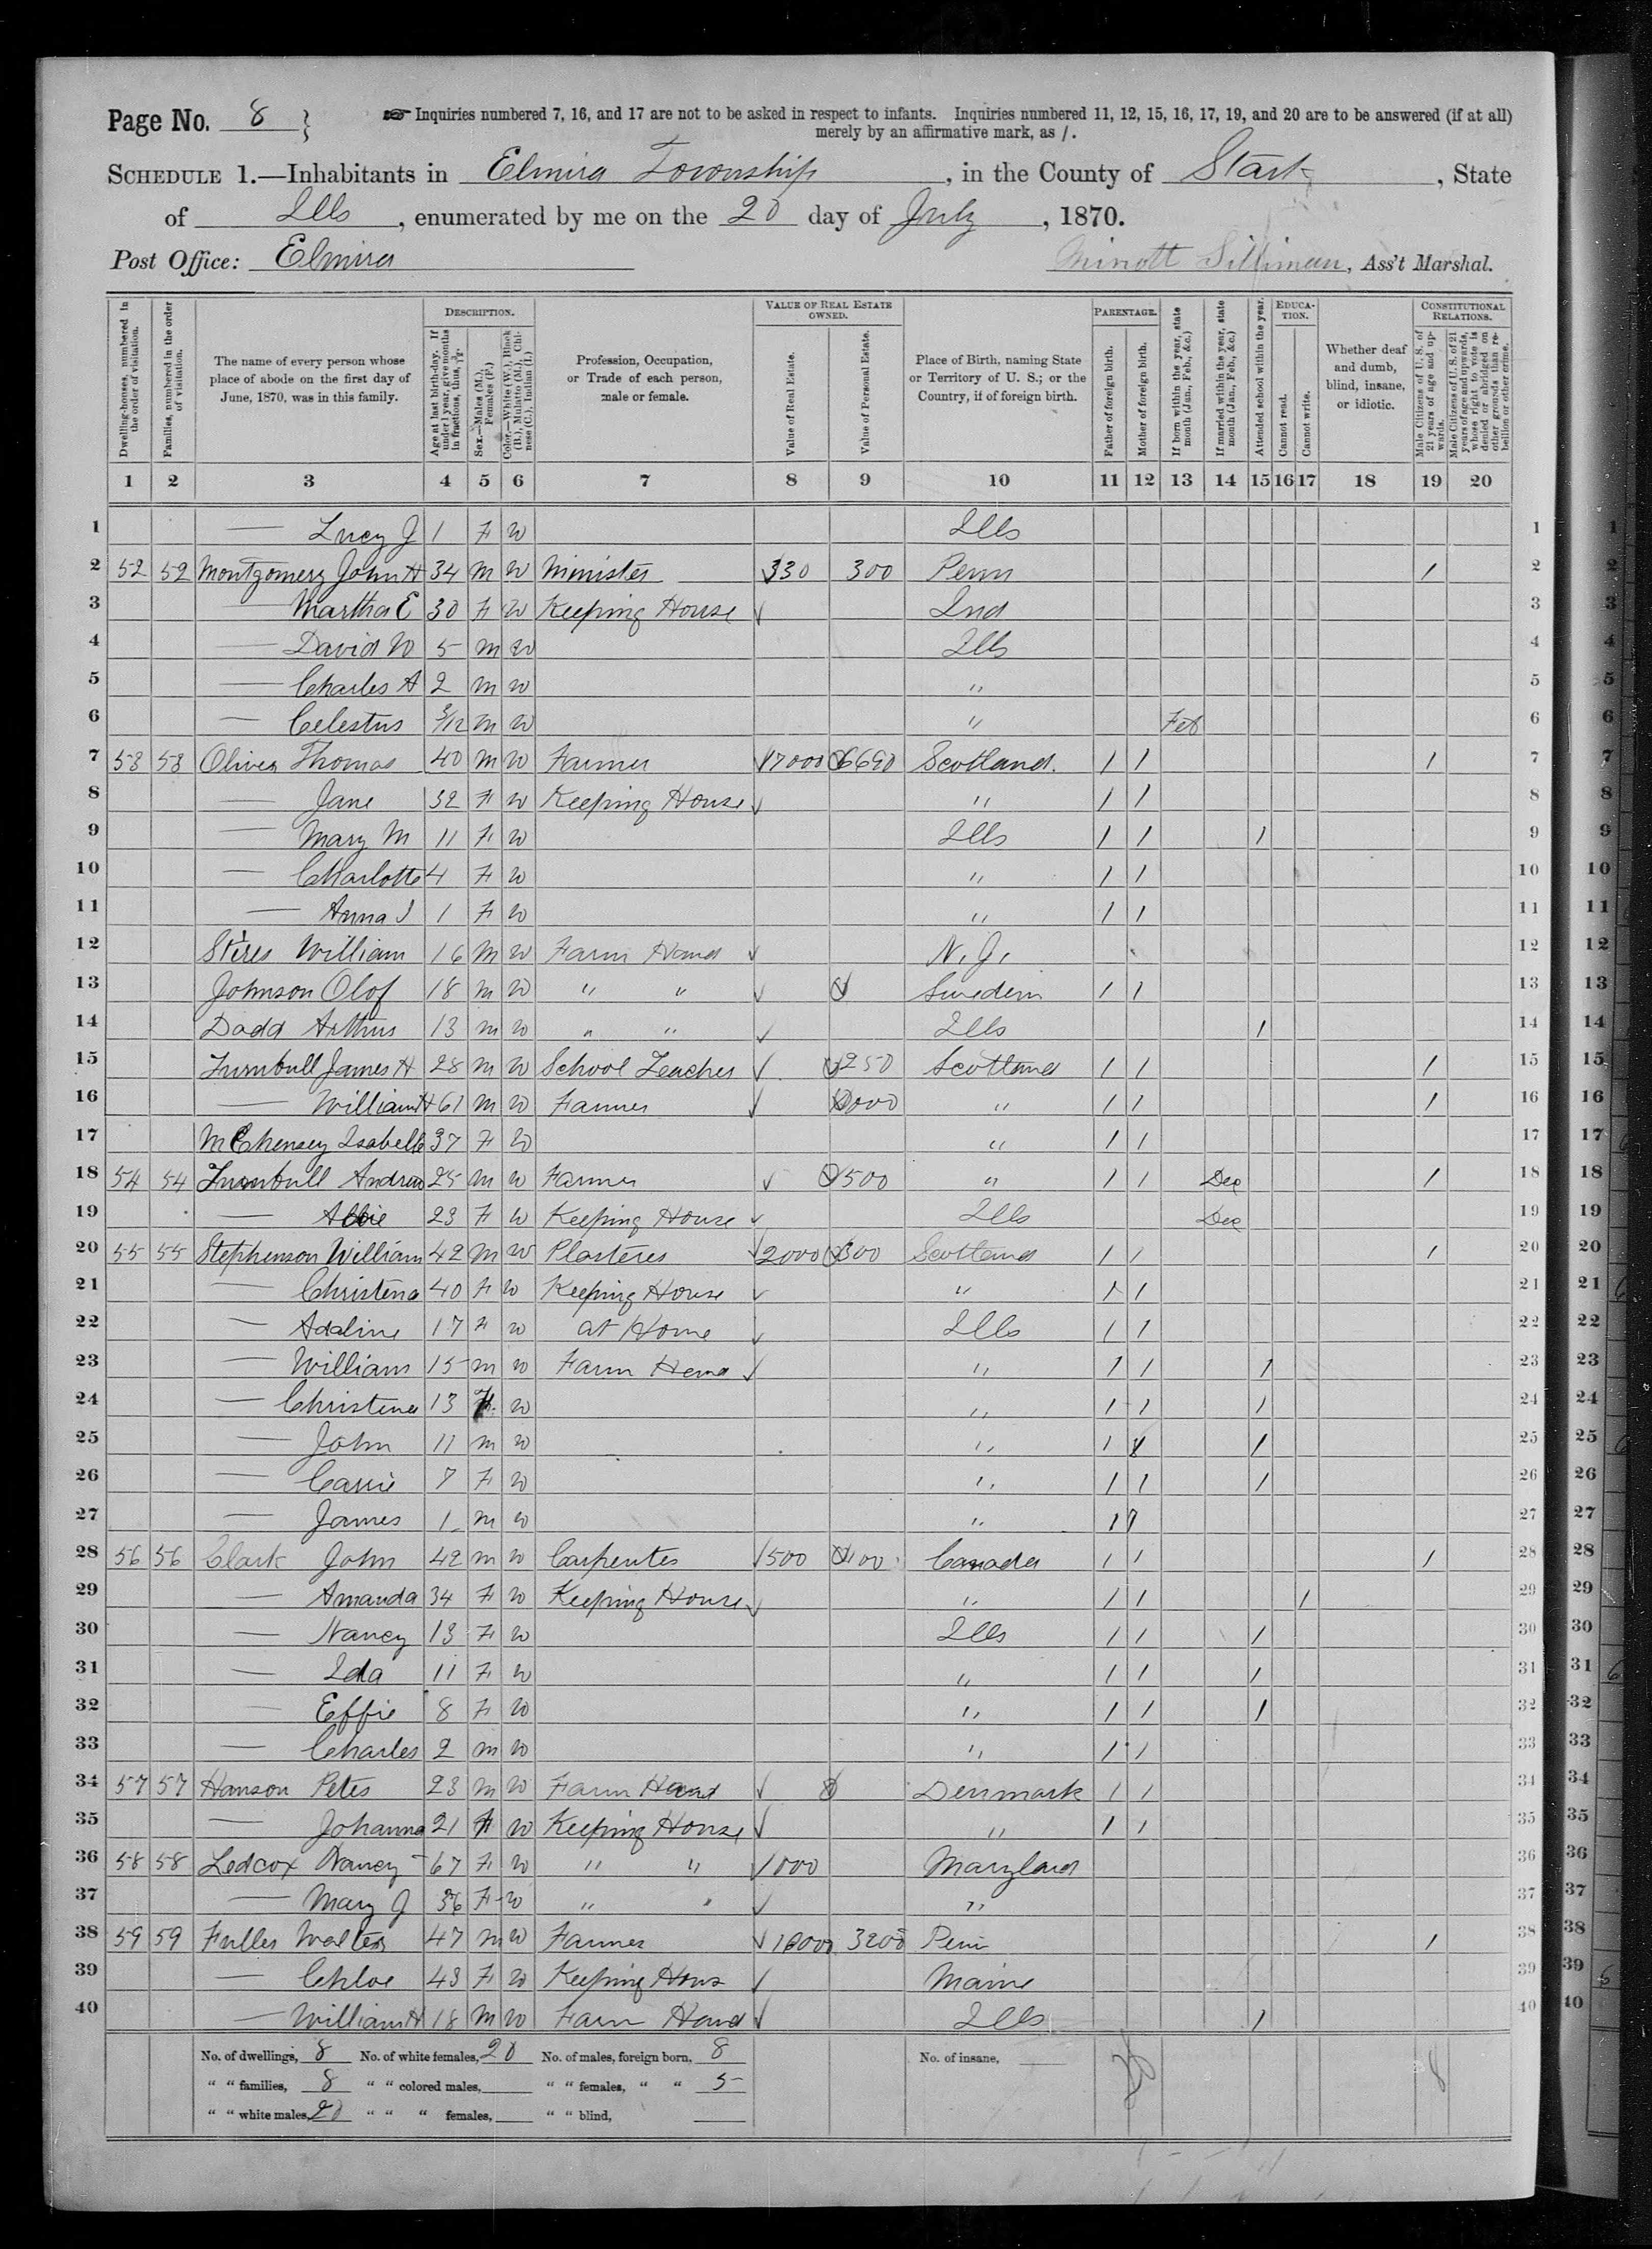 Page No. 8 } ☞ Inquiries numbered 7, 16, and 17 are not to be asked in respect to infants. Inquiries numbered 11, 12, 15, 16, 17, 19, and 20 are to be answered (if at all)
merely by an affirmative mark, as /.
SCHEDULE 1.—Inhabitants in Elmira Township, in the County of Stark, State
of Ills, enumerated by me on the 20 day of July, 1870.
Post Office: Elmira Minott Silliman, Ass't Marshal.
Dwelling-houses, numbered in the order of visitation.
Families, numbered in the order of visitation.
The name of every person whose place of abode on the first day of June, 1870, was in this family.
DESCRIPTION.
Age at last birth-day. If under 1 year, give months in fractions, thus, 3/12.
Sex.—Males (M.), Females (F.)
Color.—White (W.), Black (B.), Mulatto (M.), Chinese (C.), Indian (I.)
Profession, Occupation, or Trade of each person, male or female.
VALUE OF REAL ESTATE OWNED.
Value of Real Estate.
Value of Personal Estate.
Place of Birth, naming State or Territory of U. S.; or the Country, if of foreign birth.
PARENTAGE.
Father of foreign birth.
Mother of foreign birth.
If born within the year, state month (Jan., Feb., &c.)
If married within the year, state month (Jan., Feb., &c.)
Attended school within the year.
EDUCATION.
Cannot read.
Cannot write.
Whether deaf and dumb, blind, insane, or idiotic.
CONSTITUTIONAL RELATIONS.
Male Citizens of U. S. of 21 years of age and upwards.
Male Citizens of U. S. of 21 years of age and upwards, whose right to vote is denied or abridged on other grounds than rebellion or other crime.
1 2 3 4 5 6 7 8 9 10 11 12 13 14 15 16 17 18 19 20
1 — Lucy J 1 F W Ills 1
2 52 52 Montgomery John H 34 M W Minister 330 300 Penn 1 2
3 — Martha E 30 F W Keeping House Ind 3
4 — David W 5 M W Ills 4
5 — Charles A 2 M W " 5
6 — Celestus 3/12 M W " Feb 6
7 53 53 Oliver Thomas 40 M W Farmer 17000 6690 Scotland. 1 1 1 7
8 — Jane 32 F W Keeping House " 1 1 8
9 — Mary M 11 F W Ills 1 1 1 9
10 — Charlotte 4 F W " 1 1 10
11 — Anna J 1 F W " 1 1 11
12 Stires William 16 M W Farm Hand N. J. 12
13 Johnson Olof 18 M W " " Swedern 1 1 13
14 Dadd Arthur 13 M W " " Ills 1 14
15 Turnbull James H 28 M W School Teacher 250 Scotland 1 1 1 15
16 — William H 61 M W Farmer " 1 1 1 16
17 McChensey Isabelle 37 F W " 1 1 17
18 54 54 Turnbull Andrew 25 M W Farmer 500 " 1 1 Dec 1 18
19 — Abbie 23 F W Keeping House Ills Dec 19
20 55 55 Stephenson William 42 M W Plasterer 2000 300 Scotland 1 1 1 20
21 — Christena 40 F W Keeping House " 1 1 21
22 — Adaline 17 F W at Home Ills 1 1 22
23 — William 15 M W Farm Hand " 1 1 1 23
24 — Christena 13 F W " 1 1 1 24
25 — John 11 M W " 1 1 1 25
26 — Carrie 7 F W " 1 1 1 26
27 — James 1 M W " 1 1 27
28 56 56 Clark John 42 M W Carpenter 500 100 Canada 1 1 1 28
29 — Amanda 34 F W Keeping House " 1 1 1 29
30 — Nancy 13 F W Ills 1 1 1 30
31 — Ida 11 F W " 1 1 1 31
32 — Effie 8 F W " 1 1 1 32
33 — Charles 2 M W " 1 1 33
34 57 57 Hanson Peter 23 M W Farm Hand Denmark 1 1 34
35 — Johanna 21 F W Keeping House " 1 1 35
36 58 58 Ledcox Nancy 67 F W " " 1000 Maryland 36
37 — Mary J 36 F W " " " 37
38 59 59 Fuller Walter 47 M W Farmer 16000 3200 Penn 1 38
39 — Chloe 43 F W Keeping Hous Maine 39
40 — William H 18 M W Farm Hand Ills 1 40
No. of dwellings, 8 No. of white females, 20 No. of males, foreign born, 8 No. of insane,
" " families, 8 " " colored males, " " females, " " 5
" " white males, 20 " " " females, " " blind,
8